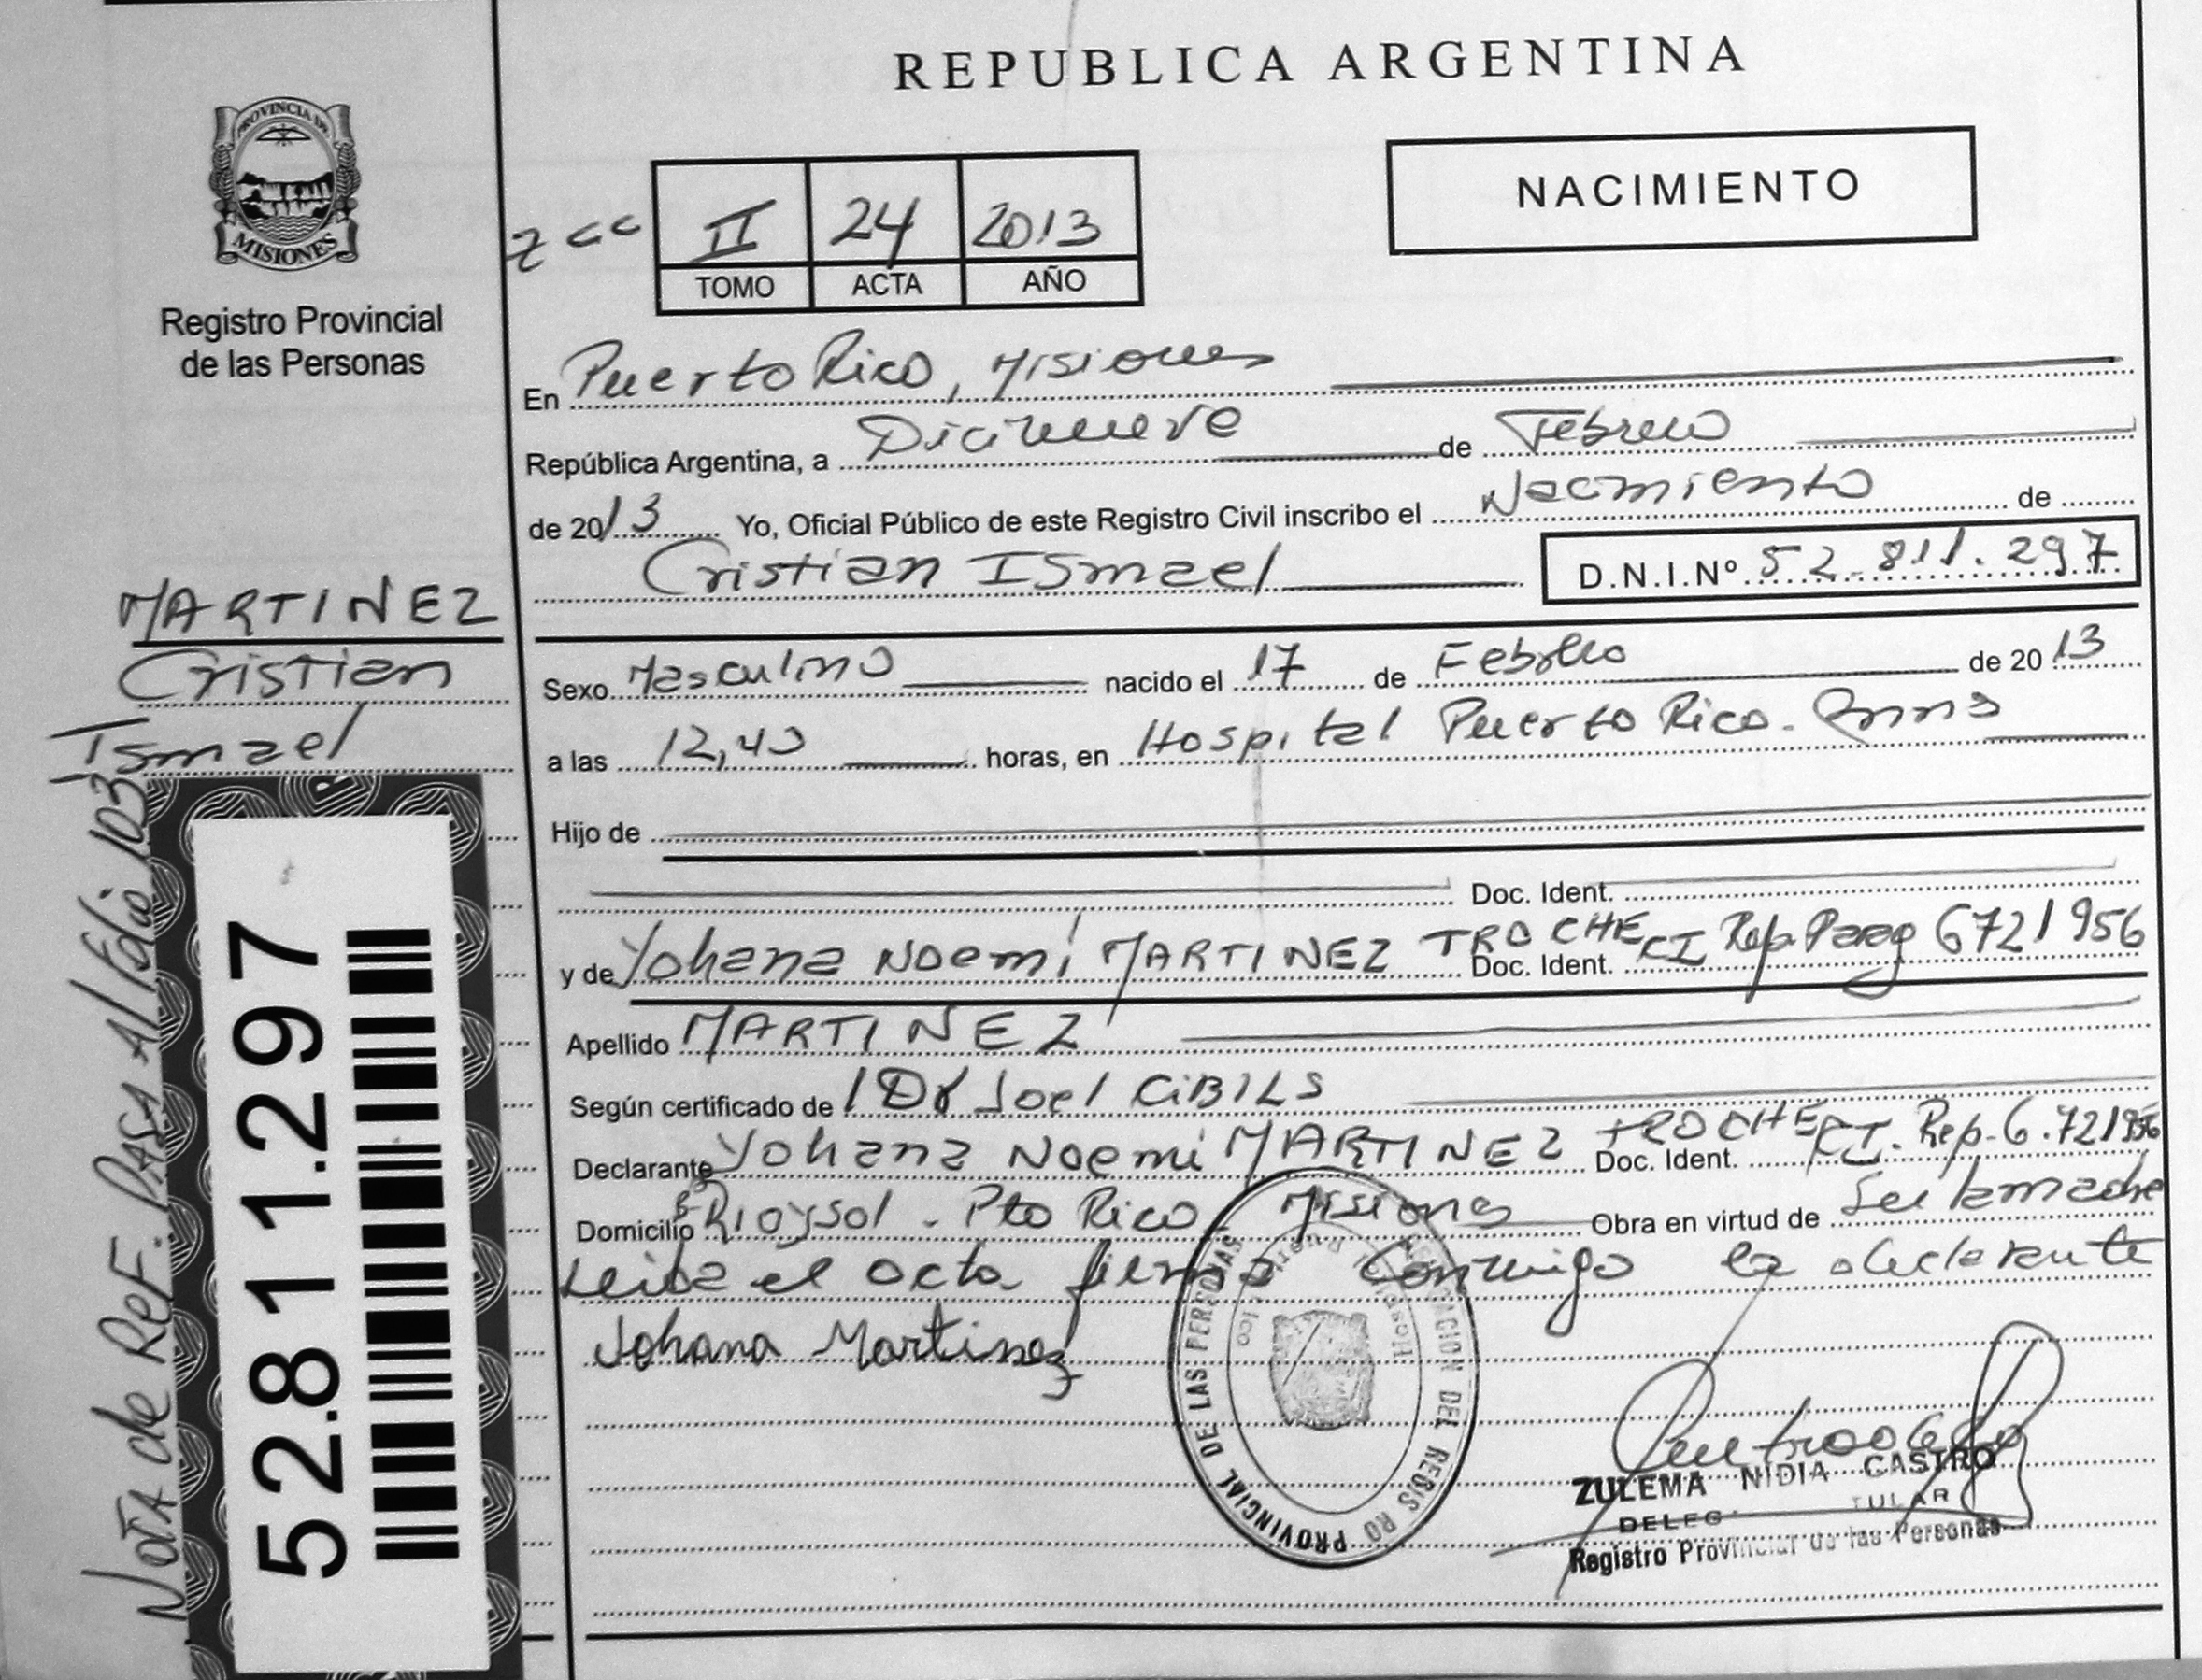 REPUBLICA ARGENTINA
PROVINCIA DE
MISIONES
Registro Provincial
de las Personas
NACIMIENTO
II 24 2013
TOMO ACTA AÑO
En Puerto Rico, Misiones
República Argentina, a Dicinueve de Febrero
de 2013 Yo, Oficial Público de este Registro Civil inscribo el Nacimiento de
Cristian Ismael D.N.I.Nº 52.811.297
MARTINEZ
Cristian
Ismael
Sexo Masculino nacido el 17 de Febrero de 2013
a las 12,40 horas, en Hospital Puerto Rico.
Hijo de
Doc. Ident.
y de Yohana Noemí MARTINEZ TROCHE Doc. Ident. CI Rep. Parag 6721956
Apellido MARTINEZ
Según certificado de Dr Joel CIBILS
Declarante Yohana Noemi MARTINEZ TROCHE Doc. Ident. CI. Rep. 6.721956
Domicilio Bº Rioysol - Pto Rico, Misiones Obra en virtud de Ser la madre
Leida el acta firma conmigo la declarante
Johana Martinez
PROVINCIAL DE LAS PERSONAS
ZULEMA NIDIA CASTRO
Registro Provincial de las Personas
Nota de Ref. PASA Al folio 103
52.811.297